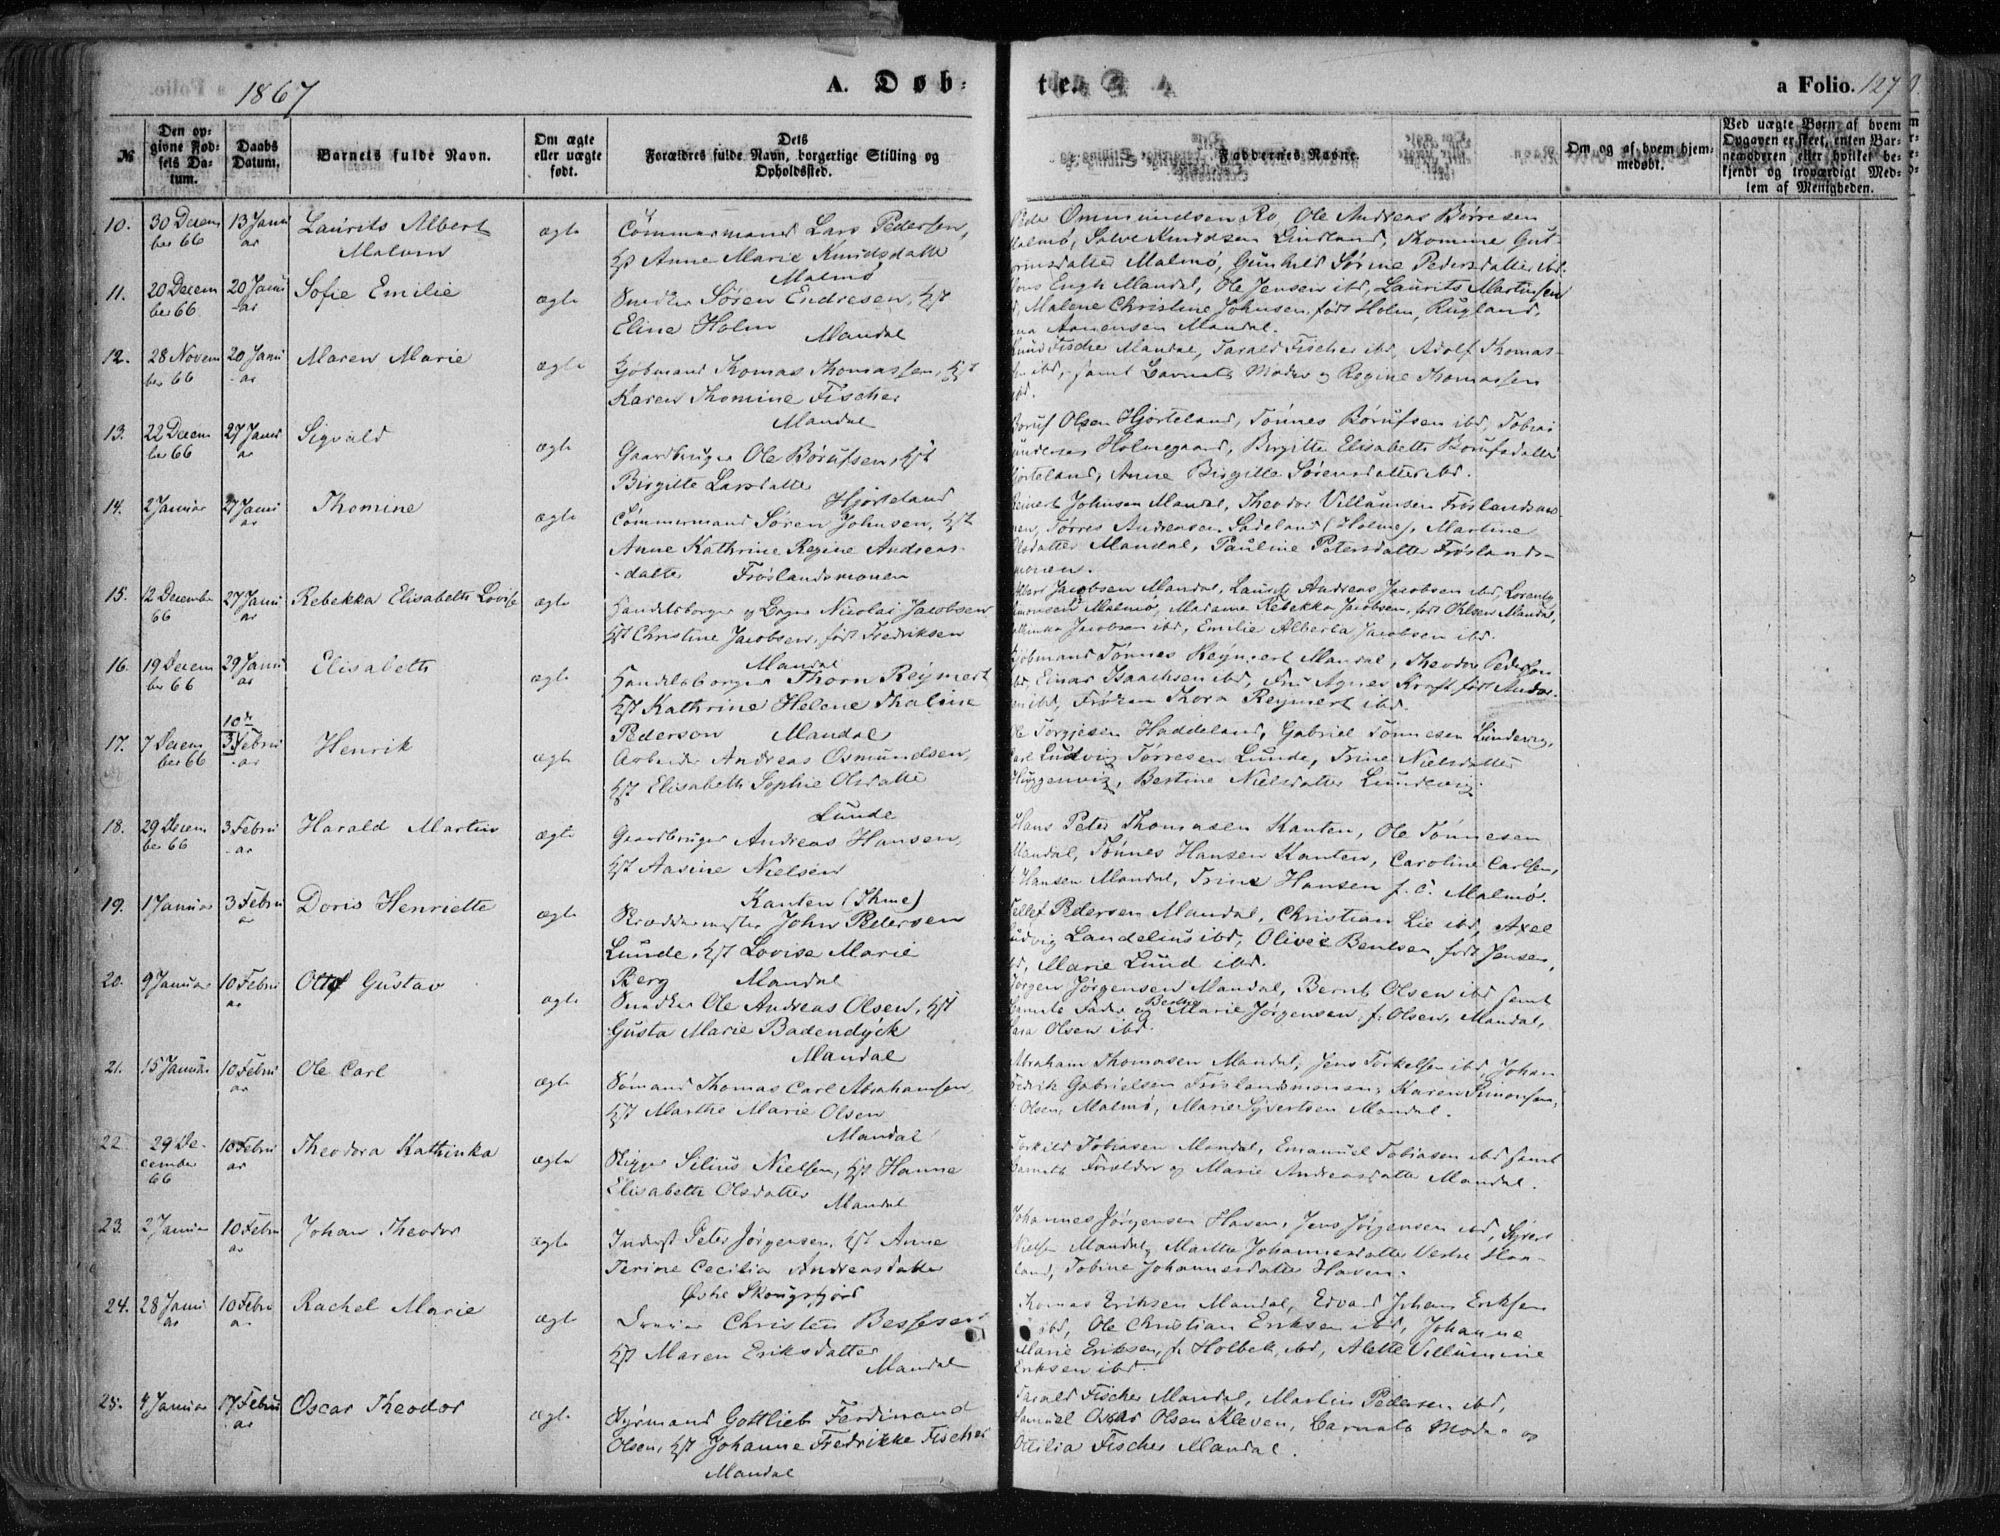 1867
A. Døb-
te.
a Folio. 127
№
Den op-
givne Fød-
sels Da-
tum.
Daabs
Datum.
Barnets fulde Navn.
Om ægte
eller uægte
født.
Dets
Forældres fulde Navn, borgerlige Stilling og
Opholdssted.
Faddernes Navne.
Om og af hvem hjem-
medøbt.
Ved uægte Børn af hvem
Opgaven er skeet, enten Bar-
nemoderen eller hvilket be-
kjendt og troværdigt Med-
lem af Menigheden.
10. 30 Decem 13 Janu Laurits Albert ægte Tømmermand Lars Pedersen,
ber 66 ar
Kst Anne Marie Knudsdatter
Malmø
Ommundsen Ro, Ole Andreas Børresen
Malmø, Salve Knudsen Lindland, Thomine Gut-
Malmø, Gunhild Sørine Pedersdatter ibd.
11. 20 Decem 20 Janu Sofie Emilie ægte Snedker Søren Endresen, Kst
ber 66 ar
Eline Holm
Mandal
Engh Mandal, Ole Jensen ibd, Laurits Martinsen
Malene Christine Johnsen født Holm, Rugland,
Aanensen Mandal.
12. 28 Novem 20 Janu Maren Marie ægte Kjøbmand Thomas Thomassen, Kst
ber 66 ar
Karen Thomine Fischer
Mandal
Fischer Mandal, Tarald Fischer ibd, Adolf Thomas-
ibd, samt Barnets Moder og Regine Thomassen
ibd.
13. 22 Decem 27 Janu Sigvald ægte Gaardbruger Ole Børufsen, Kst
ber 66 ar
Birgitte Larsdatter
Hjorteland
Børuf Olsen Hjorteland, Tønnes Børufsen ibd, Tobias
Holmegaard, Birgitte Elisabeth Børufsdatter
Hjorteland, Anne Birgitte Sørensdatter ibd.
14. 2 Januar 27 Janu Thomine ægte Tømmermand Søren Johnsen, Kst
ar
Anne Kathrine Regine Andreas-
datter Frøslandsmonen
Reinert Johnsen Mandal, Theodor Villumsen Frøslandsmo-
nen, Tørres Andreasen Sadeland (Holme), Martine
Mandal, Pauline Petersdatter Frøslands-
monen.
15. 12 Decembe 27 Janu Rebekka Elisabeth Lovise ægte Handelsborger og Nicolai Jacobsen
66 ar
Kst Christine Jacobsen, født Fredriksen
Mandal
Jacobsen Mandal, Laurits Andreas Jacobsen ibd, Lorentz
Simonsen Malmø, Madame Rebekka Jacobsen, født Olsen Mandal,
Jacobsen ibd, Emilie Alberta Jacobsen ibd.
16. 19 Decem 29 Janu Elisabeth ægte Handelsborger Thorn Reymert
ber 66 ar
Kst Kathrine Helene Thaline
Pederson Mandal
Kjøbmand Tønnes Reymert Mandal, Theodor Pederson
ibd, Einar Isaachsen ibd, Fru Agnes Kraft, født
ibd, Frøken Thora Reymert ibd.
17. 7 Decem 10de Henrik ægte Arbeider Andreas Osmundsen,
ber 66 3 Febru
ar
Kst Elisabeth Sophie Olsdatter
Lunde
Ole Torgjesen Haddeland, Gabriel Tønnesen Lundevig,
Carl Ludvig Tørresen Lunde, Trine Nielsdatter
Bertine Nielsdatter Lundevig.
18. 29 Decem 3 Febru Harald Martin ægte Gaardbruger Andreas Hansen,
ber 66 ar
Kst Aasine Nielsen
Kanten (Ihme)
Hans Peter Thomasen Kanten, Ole Tønnesen
Mandal, Tønnes Hansen Kanten, Caroline Carlsen,
f. Hansen Mandal, Trine Hansen f. C. Malmø.
19. 1 Januar 3 Febru Doris Henriette ægte Skræddermester John Pedersen
ar
Lunde, Kst Lovise Marie
Berg Mandal
Tellef Pedersen Mandal, Christian Lie ibd, Axel
Ludvig Landelius ibd, Olivie Bentsen, født Jensen,
ibd, Marie Lund ibd.
20. 9 Januar 10 Febru Otto Gustav ægte Snedker Ole Andreas Olsen, Kst
ar
Gusta Marie Badendyck
Mandal
Jørgen Jørgensen Mandal, Bernt Olsen ibd samt
Barnets Fader og Berthe Marie Jørgensen f. Olsen, Mandal,
Olsen ibd.
21. 15 Januar 10 Febru Ole Carl ægte Sømand Thomas Carl Abrahamsen,
ar
Kst Marthe Marie Olsen
Mandal
Abraham Thomasen Mandal, Jens Torkelsen ibd, Johan
Fredrik Gabrielsen Frøslandsmonen, Karen Simonsen,
f. Olsen, Malmø, Marie Syvertsen Mandal.
22. 29 De- 10 Febru Theodora Kathinka ægte Rigger Silius Nielsen, Kst Hanne
cember ar
66
Elisabeth Olsdatter
Mandal
Torkild Tobiasen Mandal, Emanuel Tobiasen ibd samt
Barnets Forældre og Marie Andreasdatter Mandal.
23. 2 Januar 10 Febru Johan Theodor ægte Inderst Peter Jørgensen, Kst Anne
ar
Terine Cecilia Andreasdatter
Østre Skougsfjord
Johannes Jørgensen Haven, Jens Jørgensen ibd, Syvert
Nielsen Mandal, Marthe Johannesdatter Vestre Haa-
land, Tobine Johannesdatter Haven.
24. 28 Janu 10 Febru Rachel Marie ægte Christen Bessesen
ar ar
Kst Maren Eriksdatter
Mandal
Thomas Eriksen Mandal, Edvard Johan Eriksen
ibd, Ole Christian Eriksen ibd, Johanne
Marie Eriksen, f. Holbek, ibd, Alette Villumine
Eriksen ibd.
25. 4 Januar 17 Febru Oscar Theodor ægte Styrmand Gottlieb Ferdinand
ar
Olsen, Kst Johanne Fredrikke Fischer
Mandal
Tarald Fischer Mandal, Martin Pedersen ibd,
Samuel Oscar Olsen Kleven, Barnets Moder og
Ottilia Fischer Mandal.